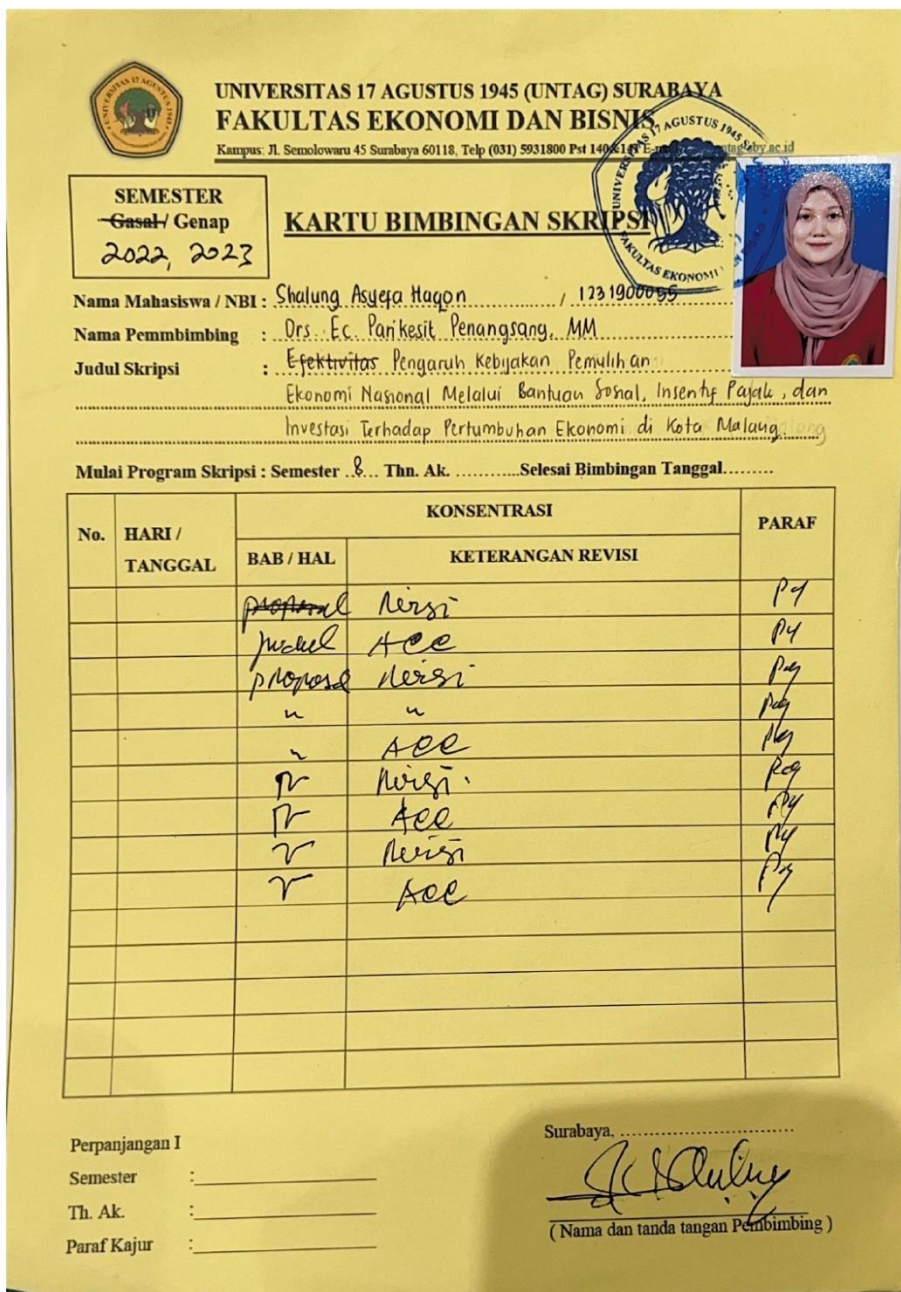 UNIVERSITAS 17 AGUSTUS 1945 (UNTAG) SURABAYA
FAKULTAS EKONOMI DAN BISNIS
Kampus: Jl. Semolowaru 45 Surabaya 60118, Telp (031) 5931800 Pst 140
UNIVERSITAS 17 AGUSTUS 1945
FAKULTAS EKONOMI
SEMESTER
Gasal / Genap
2022, 2023
KARTU BIMBINGAN SKRIPSI
Nama Mahasiswa / NBI : Shalung Asyefa Haqon / 1231900055
Nama Pemmbimbing : Drs. Ec. Parikesit Penangsang, MM
Judul Skripsi : Efektivitas Pengaruh Kebijakan Pemulihan
Ekonomi Nasional Melalui Bantuan Sosial, Insentif Pajak, dan
Investasi Terhadap Pertumbuhan Ekonomi di Kota Malang
Mulai Program Skripsi : Semester ..8... Thn. Ak. ............Selesai Bimbingan Tanggal.........
No. HARI / TANGGAL KONSENTRASI PARAF
BAB / HAL KETERANGAN REVISI
proposal Revisi
judul ACC
proposal Revisi
" "
" ACC
IV Revisi
IV ACC
V Revisi
V ACC
Perpanjangan I
Semester :
Th. Ak. :
Paraf Kajur :
Surabaya, ..............................
( Nama dan tanda tangan Pembimbing )